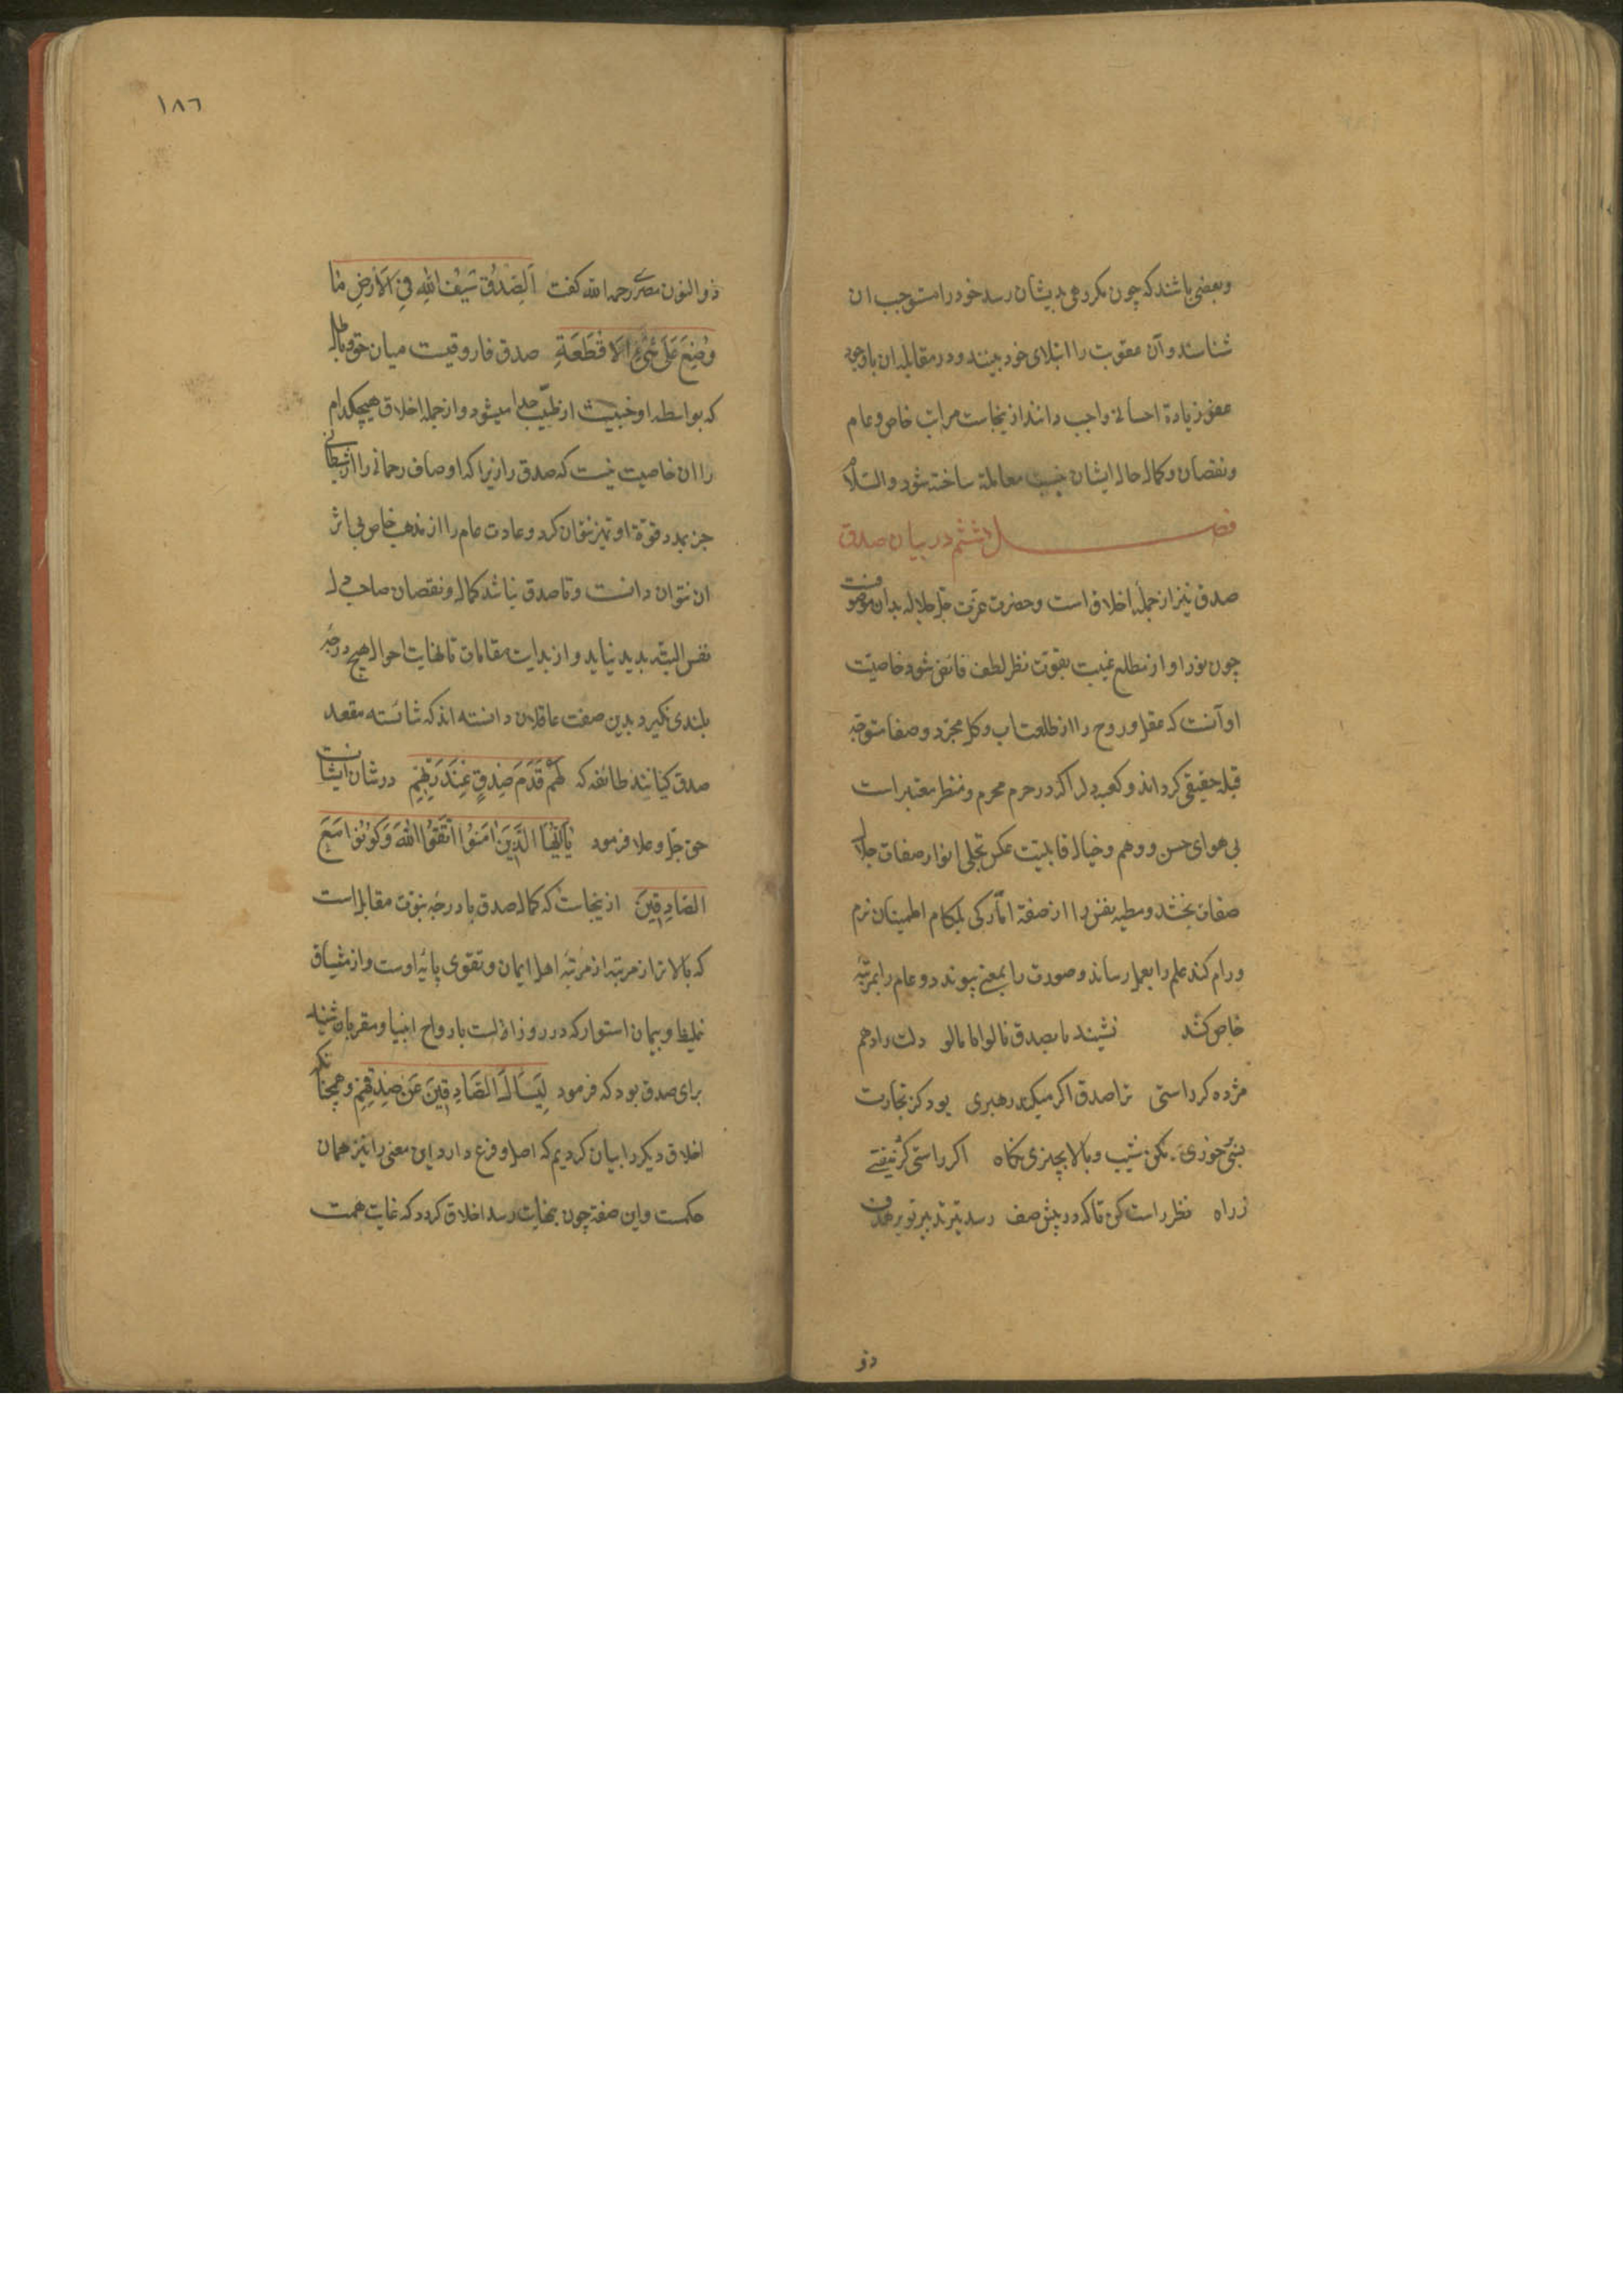 وبعضی باشند که چون مکروهی بدیشان رسد خود را مستوجب ان
شناسند وآن عقوبت را ابتلای خود بینند ودر مقابله ان باوجود
عفو زیادة احسانی واجب دانند ازینجاست مراتب خاص وعام
ونقصان وکمال حال ایشان معاملة ساخته شود والسّلام
فصل هشتم در بیان صدق
صدق نیز از جملهٔ اخلاق است وحضرت عزّت جلّ جلاله بدان موصوفست
چون نور او از مطلع غیب بقوّت نظر لطف فائض شود خاصیّت
او آنست که عقل وروح را از وصفا متوجّه
قبلهٔ حقیقی کرداند وکعبهٔ دل را که در حرم محرم ومنظر معتبر است
بی هوای حس ووهم وخیال قابلیّت عکس تجلی انوار صفات جلال
صفات بخشد ومطیهٔ نفس را از صفة امّارکی بمکام اطمینان نرم
ورام کند علم را بعمل رساند وصورت را بمعنی پیوندد وعام را بمرتبهٔ
خاص کشد نشیند با بصدق دلت را دهم
مژده کر راستی ترا صدق اگر میکند رهبری بود کز تجارت
بسی خوری بکن شیب وبالا بچیزی نگاه اکر راستی کژ نیفتی
زراه نظر راست کن تا که در پیش صف رسد تیر تدبیر تو بر هدف
ذو
١٨٦
ذوالنون مصری رحمه الله کفت اَلصِّدْقُ سَیْفُ اللهِ فِی الْاَرْضِ مٰا
وُضِعَ عَلَی شَیْءٍ اِلَّا قَطَعَهِ صدق فاروقیست میان حق وباطل
که بواسطه او خبیث از طیّب جدا میشود واز جمله اخلاق هیچکدام
را ان خاصیت نیست که صدق را زیرا که اوصاف رحمانی را از شیطانی
جز بمدد قوّة او تمیز نتوان کرد وعادت عام را از مذهب خاص بی اثر
ان نتوان دانست وتا صدق نباشد کمال ونقصان صاحب دل
نفس البته بدید نیاید واز بدایت مقامات تا نهایت احوال هیچ درجهٔ
بلندی نکیرد بدین صفت عاقلان دانسته اند که شائسته مقعد
صدق کیانند طائفه که لَهُمْ قَدَمَ صِدْقٍ عِنْدَ رَبِّهِمْ در شان ایشانست
حق جلّ وعلا فرمود یٰا اَیُّهَا الَّذِینَ اٰمَنُوا اتَّقُوا اللهَ وَکُونُوا مَعَ
الصَّادِقِینَ ازینجاست که کمال صدق با درجهٔ نبوّت مقابل است
که بالاتر از مرتبه از مرتبهٔ اهل ایمان وتقوی پایهٔ اوست واز میثاق
غلیظ وپیمان استوار که در روز ازلست بارواح انبیا ومقربان
برای صدق بود که فرمود لِیَسْأَلَ الصَّادِقِینَ عَنْ صِدْقِهِمْ وهمچنانکه
اخلاق دیکر را بیان کردیم که اصل وفرع دارد این معنی را نیز همان
حکمست واین صفة چون بنهایت رسد اخلاق کردد که غایت همت